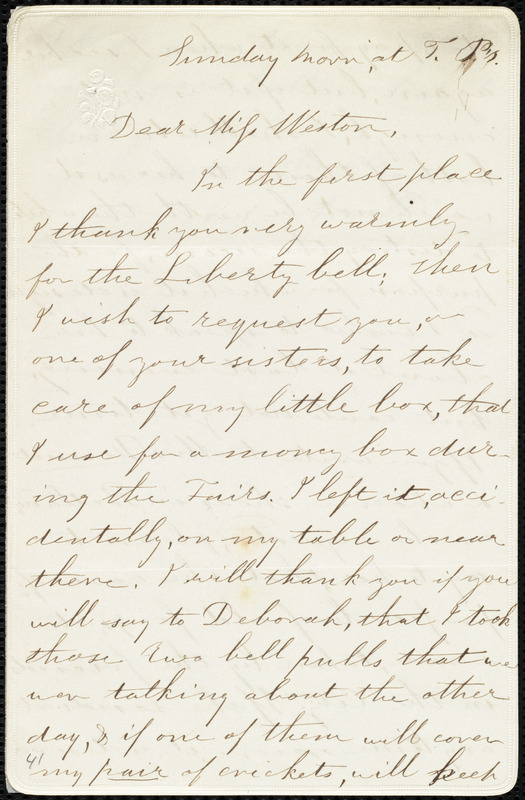 Sunday morn', at T. P's.
Dear Miss Weston,
In the first place
I thank you very warmly
for the Liberty bell; then
I wish to request you, or
one of your sisters, to take
care of my little box, that
I use for a money box dur-
ing the Fairs. I left it, acci-
dentally, on my table or near
there. I will thank you if you
will say to Deborah, that I took
those two bell pulls that we
wer talking about the other
day, & if one of them will cover
my pair of crickets, will keep
41